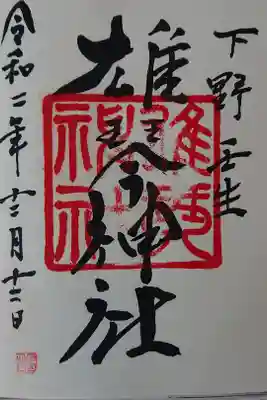 下野壬生
雄琴神社
雄琴神社
令和二年十二月十二日